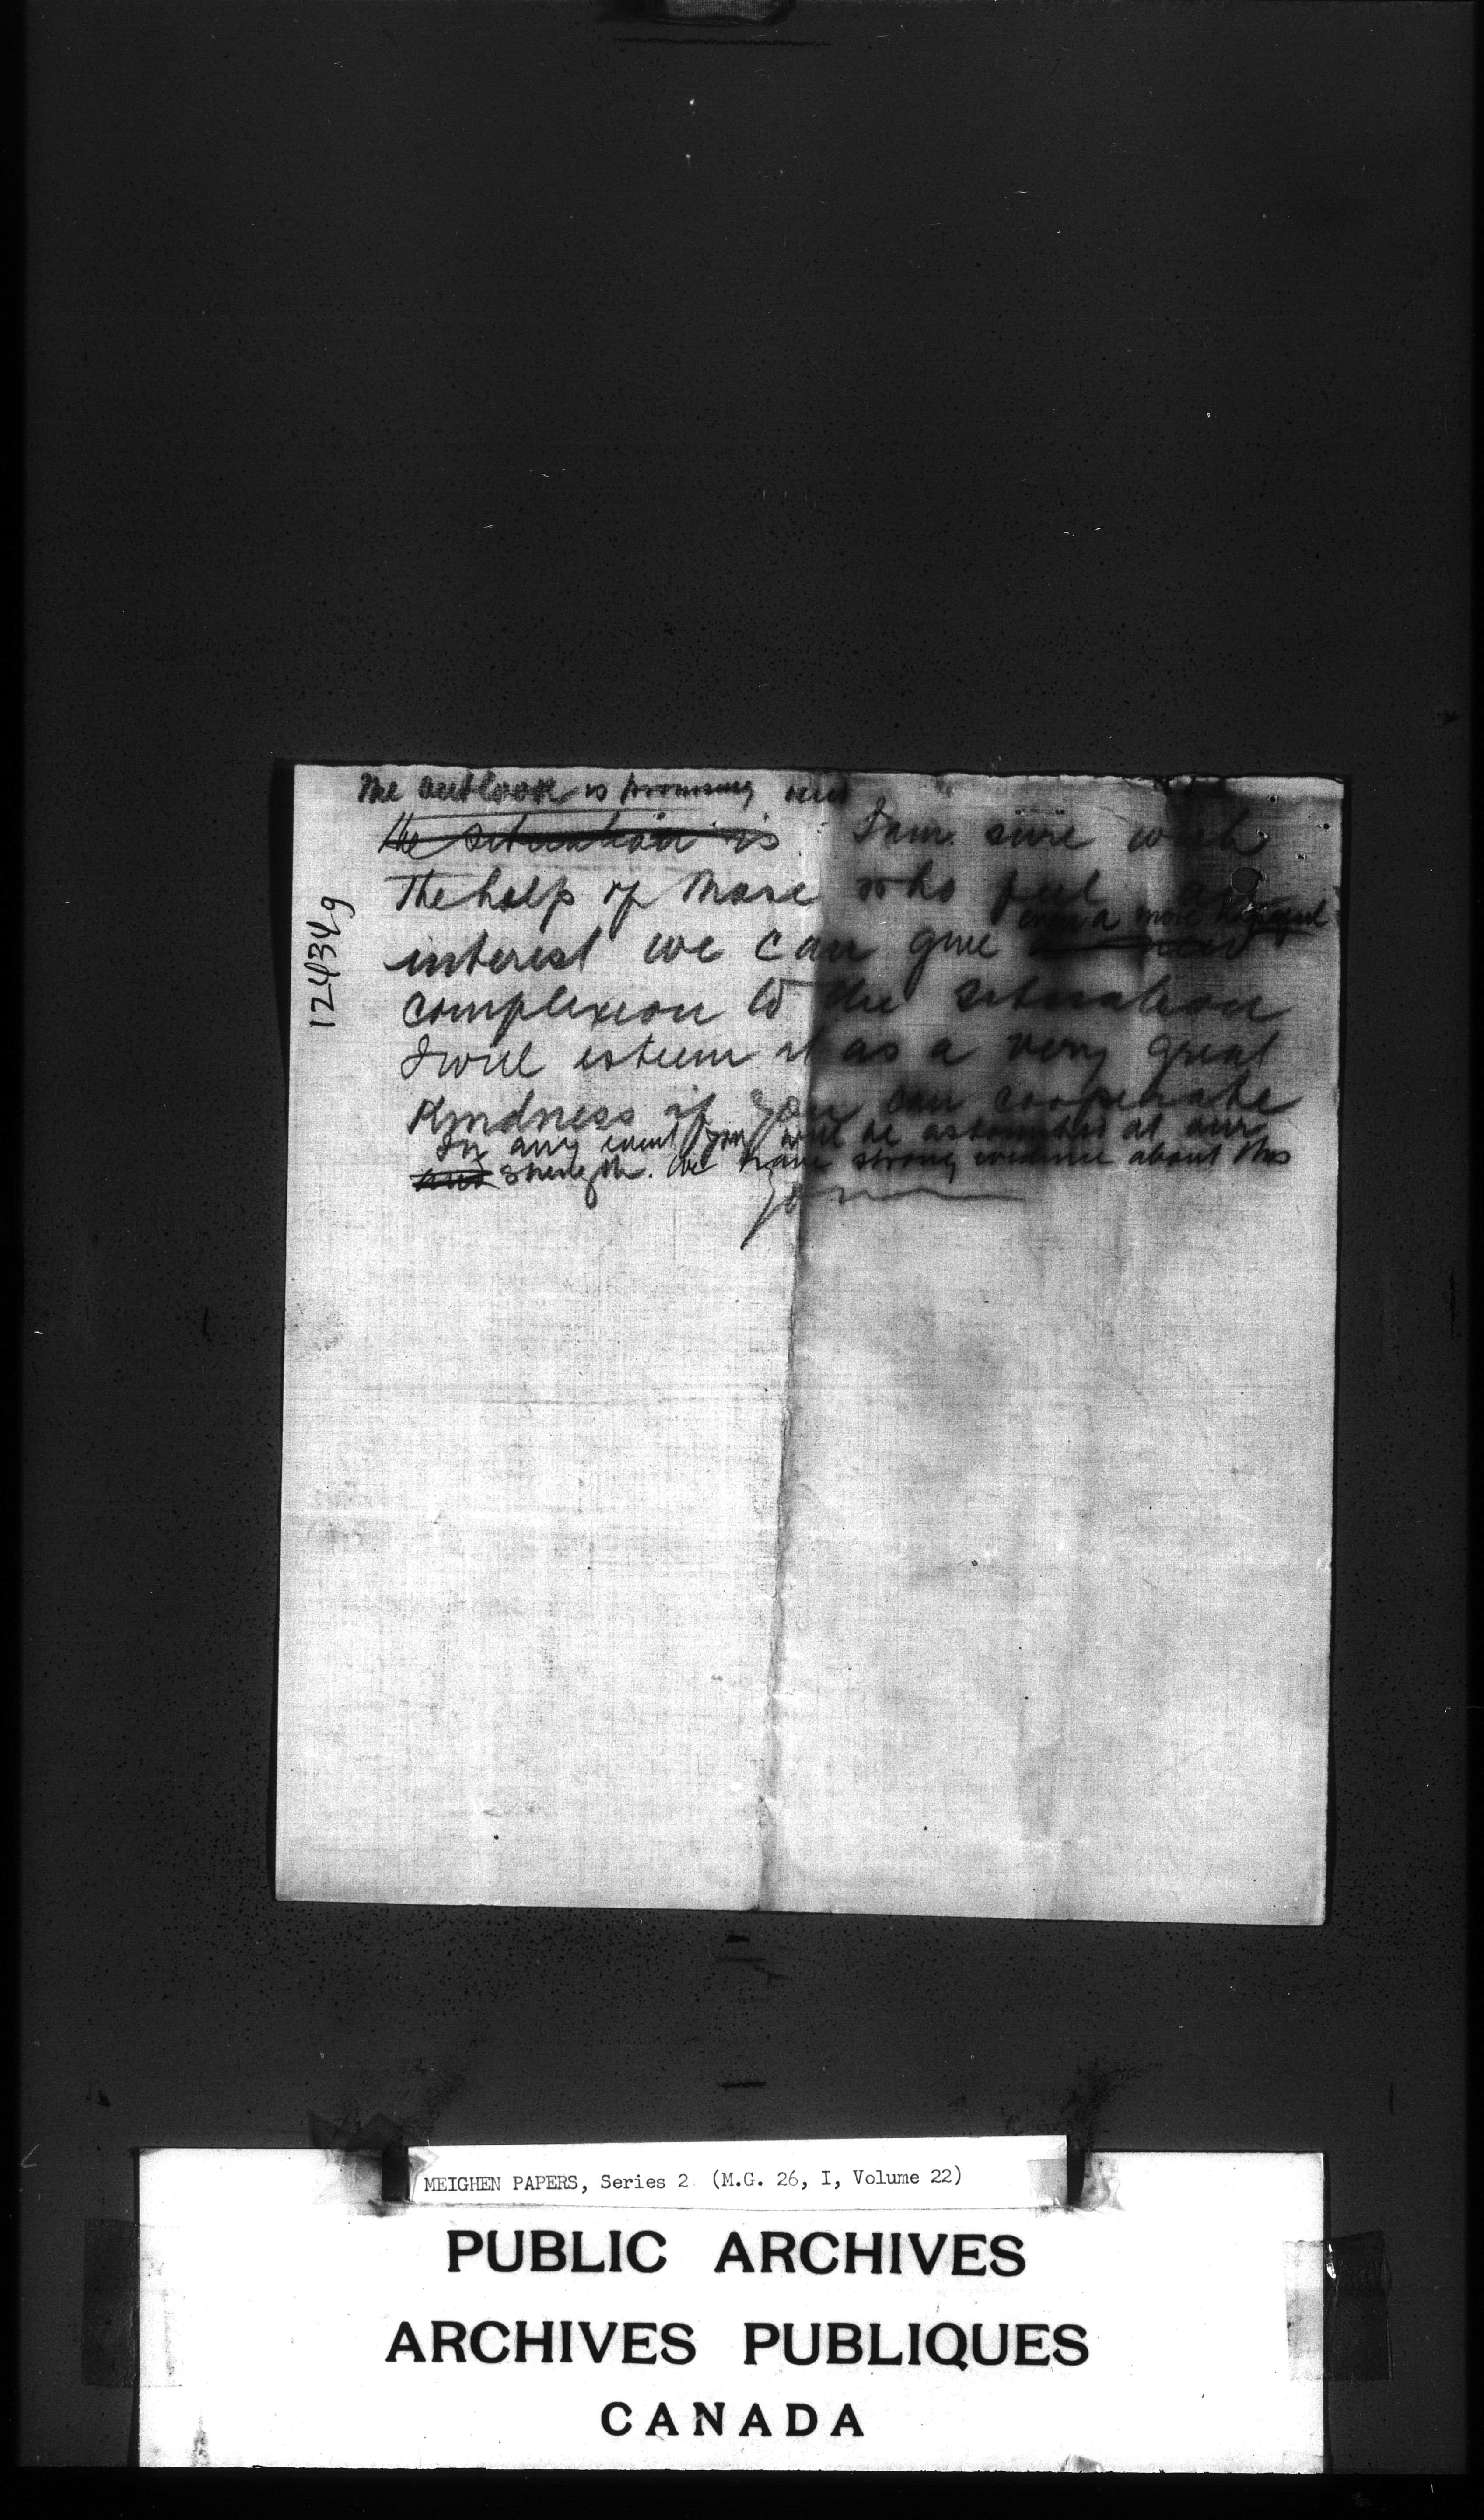 The outlook is promising and
the situation is I am sure with
the help of those who feel an
even a more hopeful
interest we can give a new
complexion to the situation
I will esteem it as a very great
kindness if you can cooperate
In any event you will be astonished at our
and strength. We have strong evidence about this
124349
MEIGHEN PAPERS, Series 2 (M.G. 26, I, Volume 22)
PUBLIC ARCHIVES
ARCHIVES PUBLIQUES
CANADA